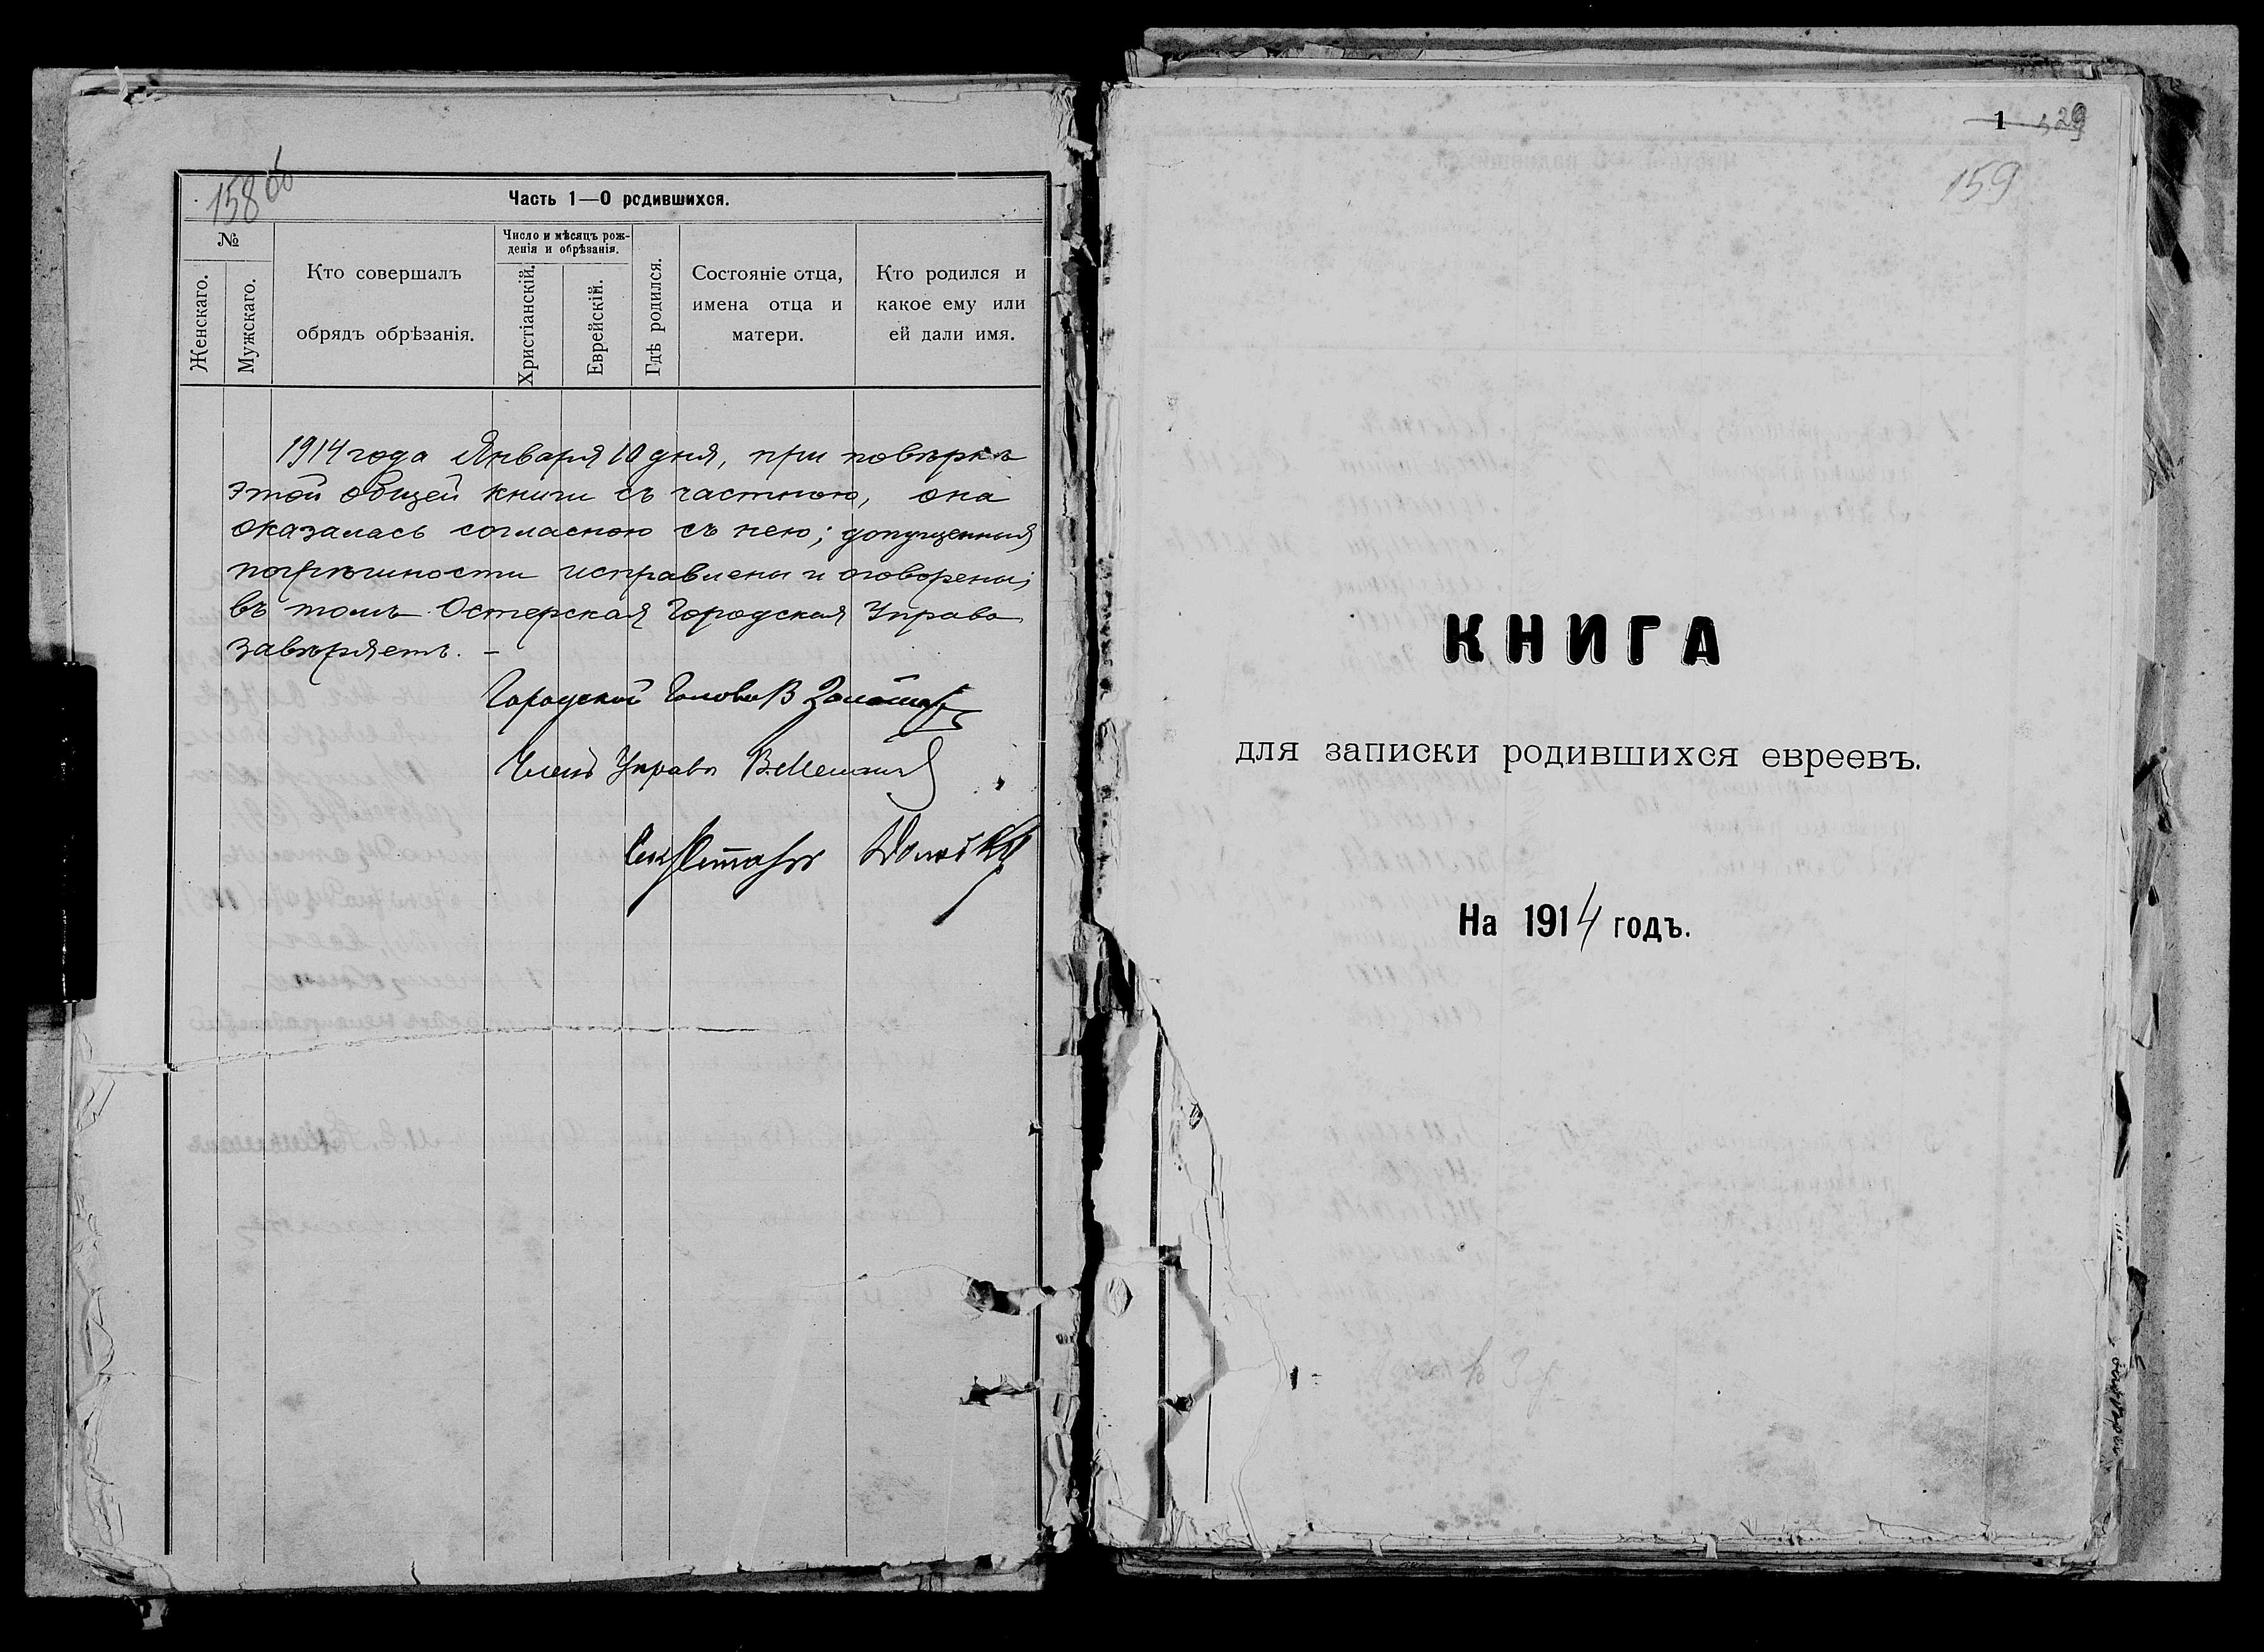 158 об
Часть 1—О родившихся.
№
Женскаго.
Мужскаго.
Кто совершалъ
обрядъ обрѣзанія.
Число и мѣсяцъ рож-
денія и обрѣзанія.
Христіанскій.
Еврейскій.
Гдѣ родился.
Состояніе отца,
имена отца и
матери.
Кто родился и
какое ему или
ей дали имя.
1914 года Января 10 дня, при повѣркѣ
этой общей книги съ частною, она
оказалась согласною съ нею; допущенныя
погрѣшности исправлены и оговорены;
въ томъ Остерская Городская Управа
завѣряетъ. –
Городской Голова В
Членъ Управы В.
Секретарь
1
29
159
КНИГА
для записки родившихся евреевъ.
На 1914 годъ.